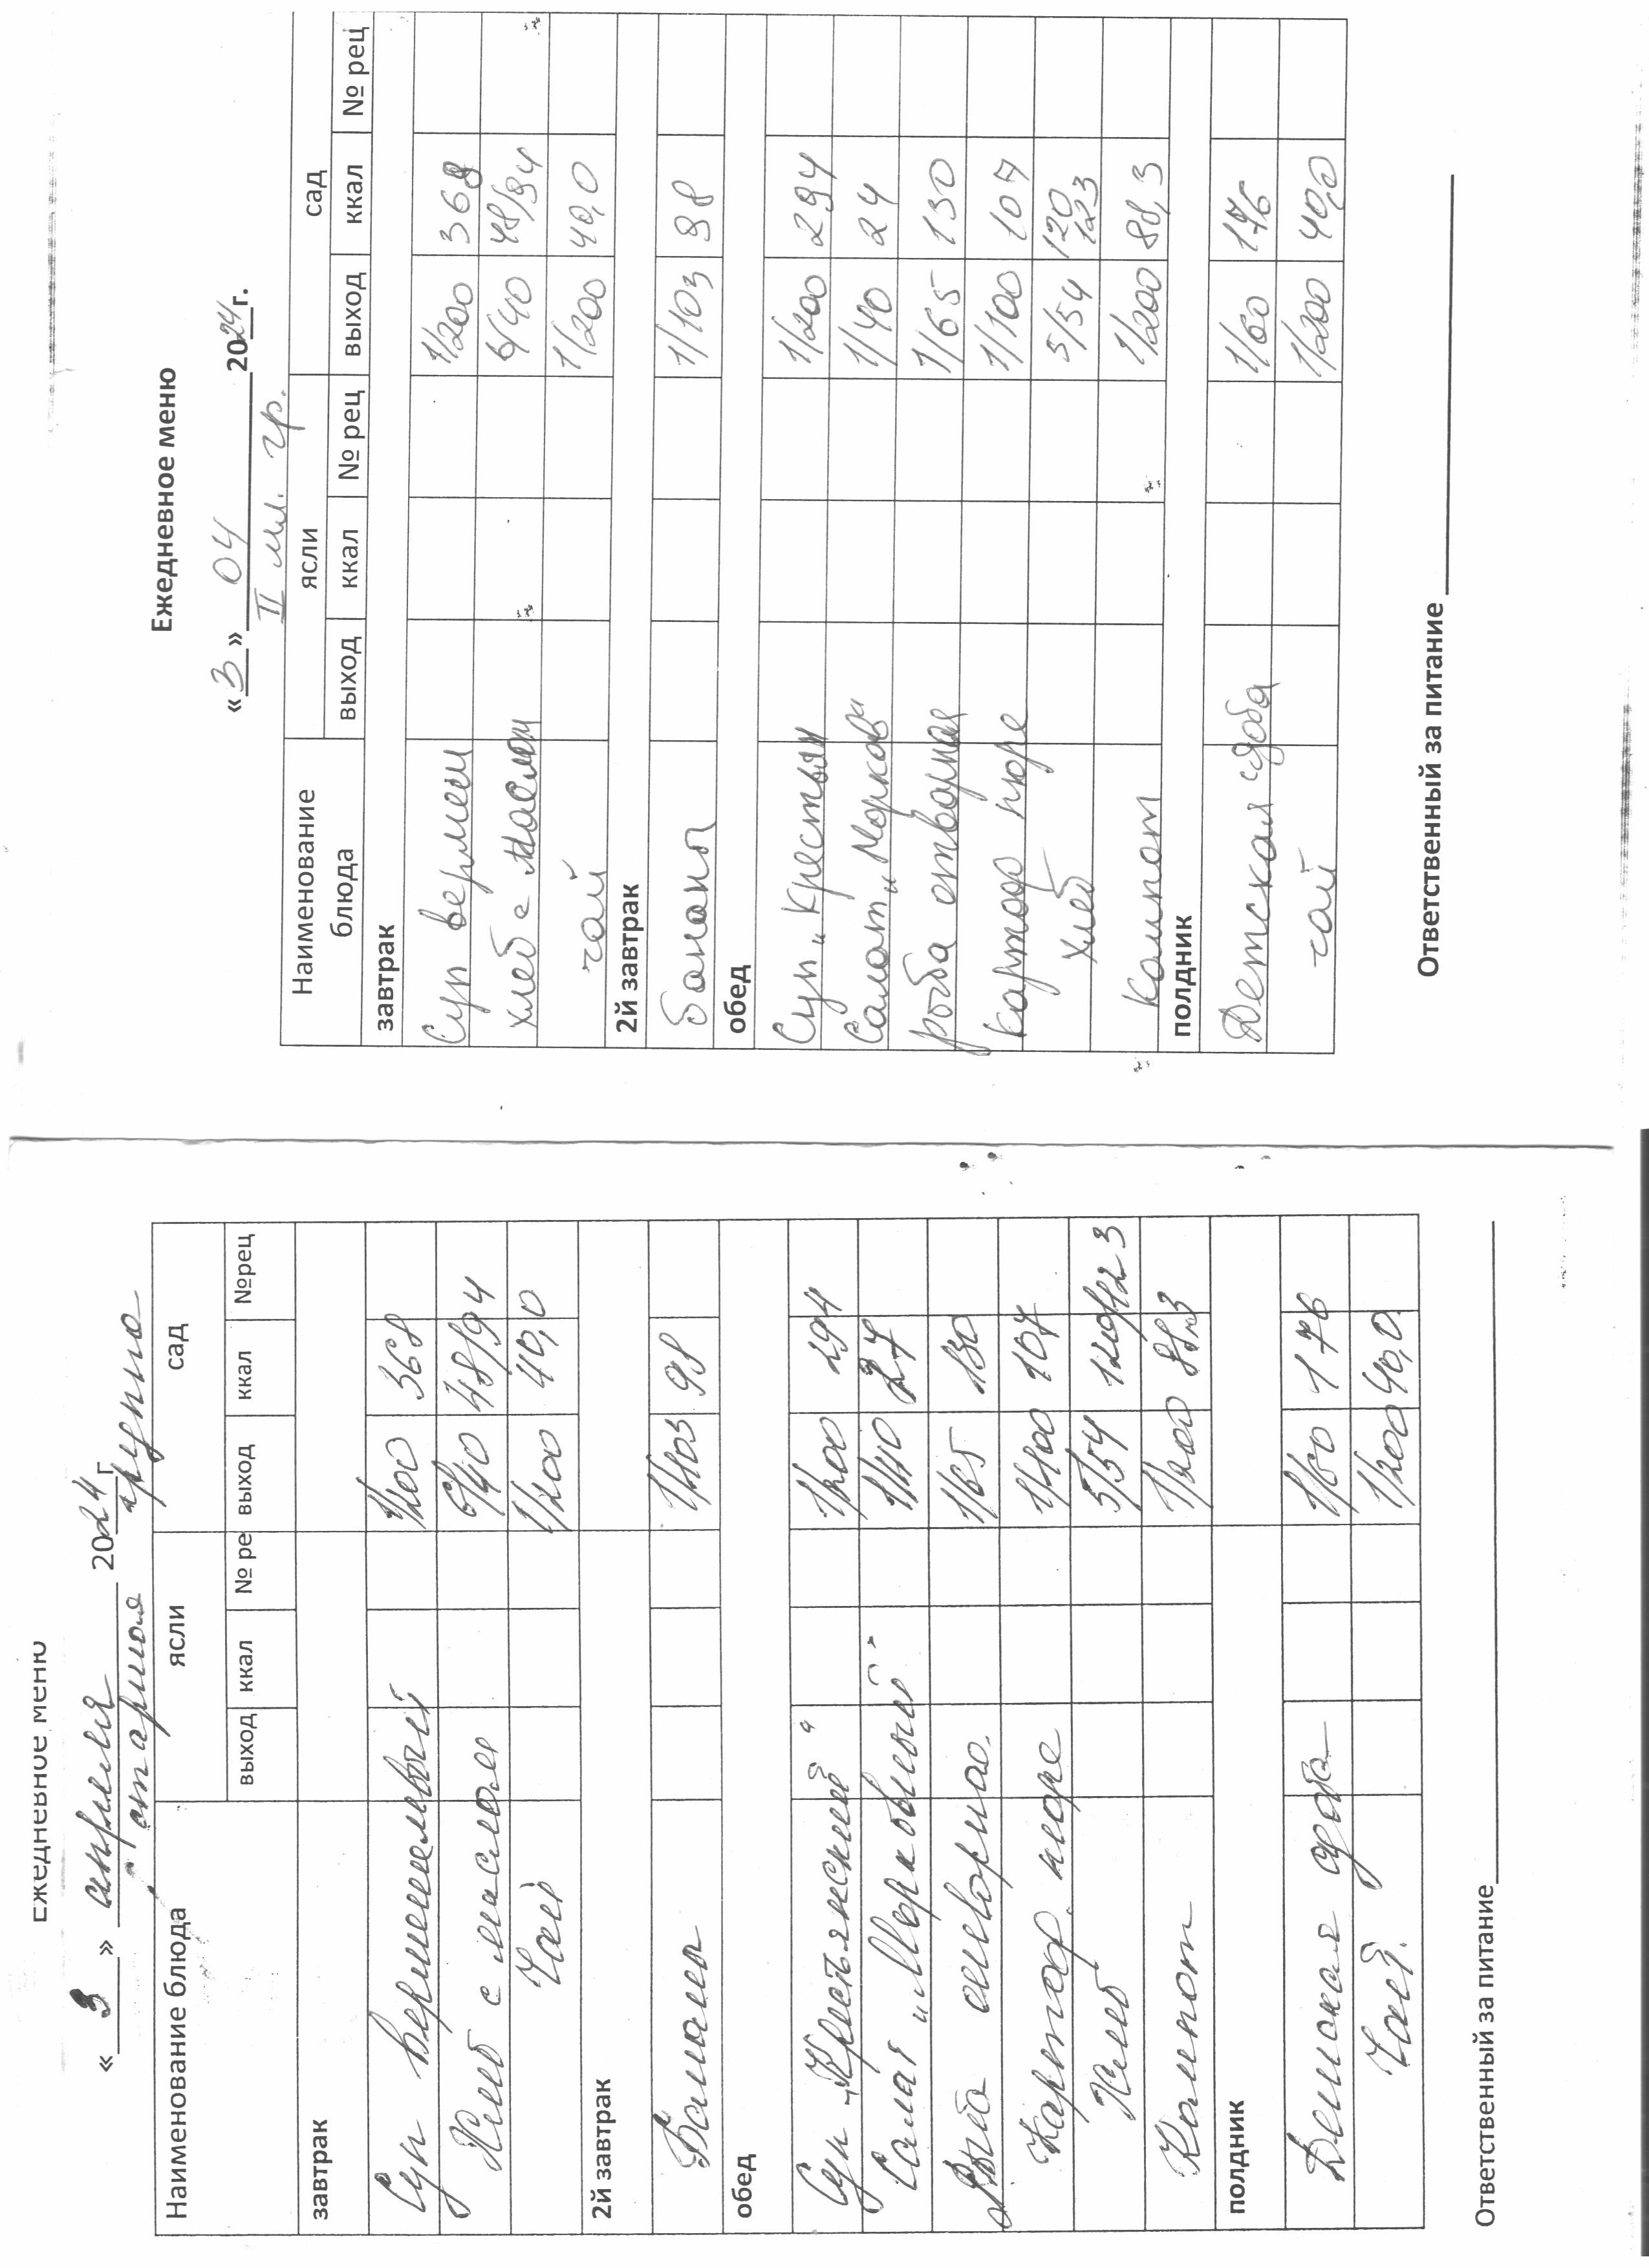 Ежедневное меню
« 3 » апреля 2024 г
старшая группа
Наименование блюда ясли сад
выход ккал № ре выход ккал №рец
завтрак
Суп вермишелевый 1/200 368
Хлеб с маслом 6/40 48/94
Чай 1/200 40,0
2й завтрак
Бананы 1/103 98
обед
Суп „Крестьянский“ 1/200 294
Салат „Морковный“ 1/40 27
Рыба отварная 1/65 130
Картоф. пюре 1/100 107
Хлеб 5/54 120/123
Компот 1/200 88,3
полдник
Детская сдоба 1/60 176
Чай 1/200 40,0
Ответственный за питание
Ежедневное меню
« 3 » 04 2024 г.
II мл. гр.
Наименование блюда ясли сад
выход ккал № рец выход ккал № рец
завтрак
Суп вермеш 1/200 368
хлеб с маслом 6/40 48/94
чай 1/200 40,0
2й завтрак
бананы 1/103 98
обед
Суп „Крестьян 1/200 294
Салат „Морков“ 1/40 24
рыба отварная 1/65 130
картоф пюре 1/100 107
хлеб 5/54 120 123
Компот 1/200 88,3
полдник
Детская сдоба 1/60 176
чай 1/200 40,0
Ответственный за питание